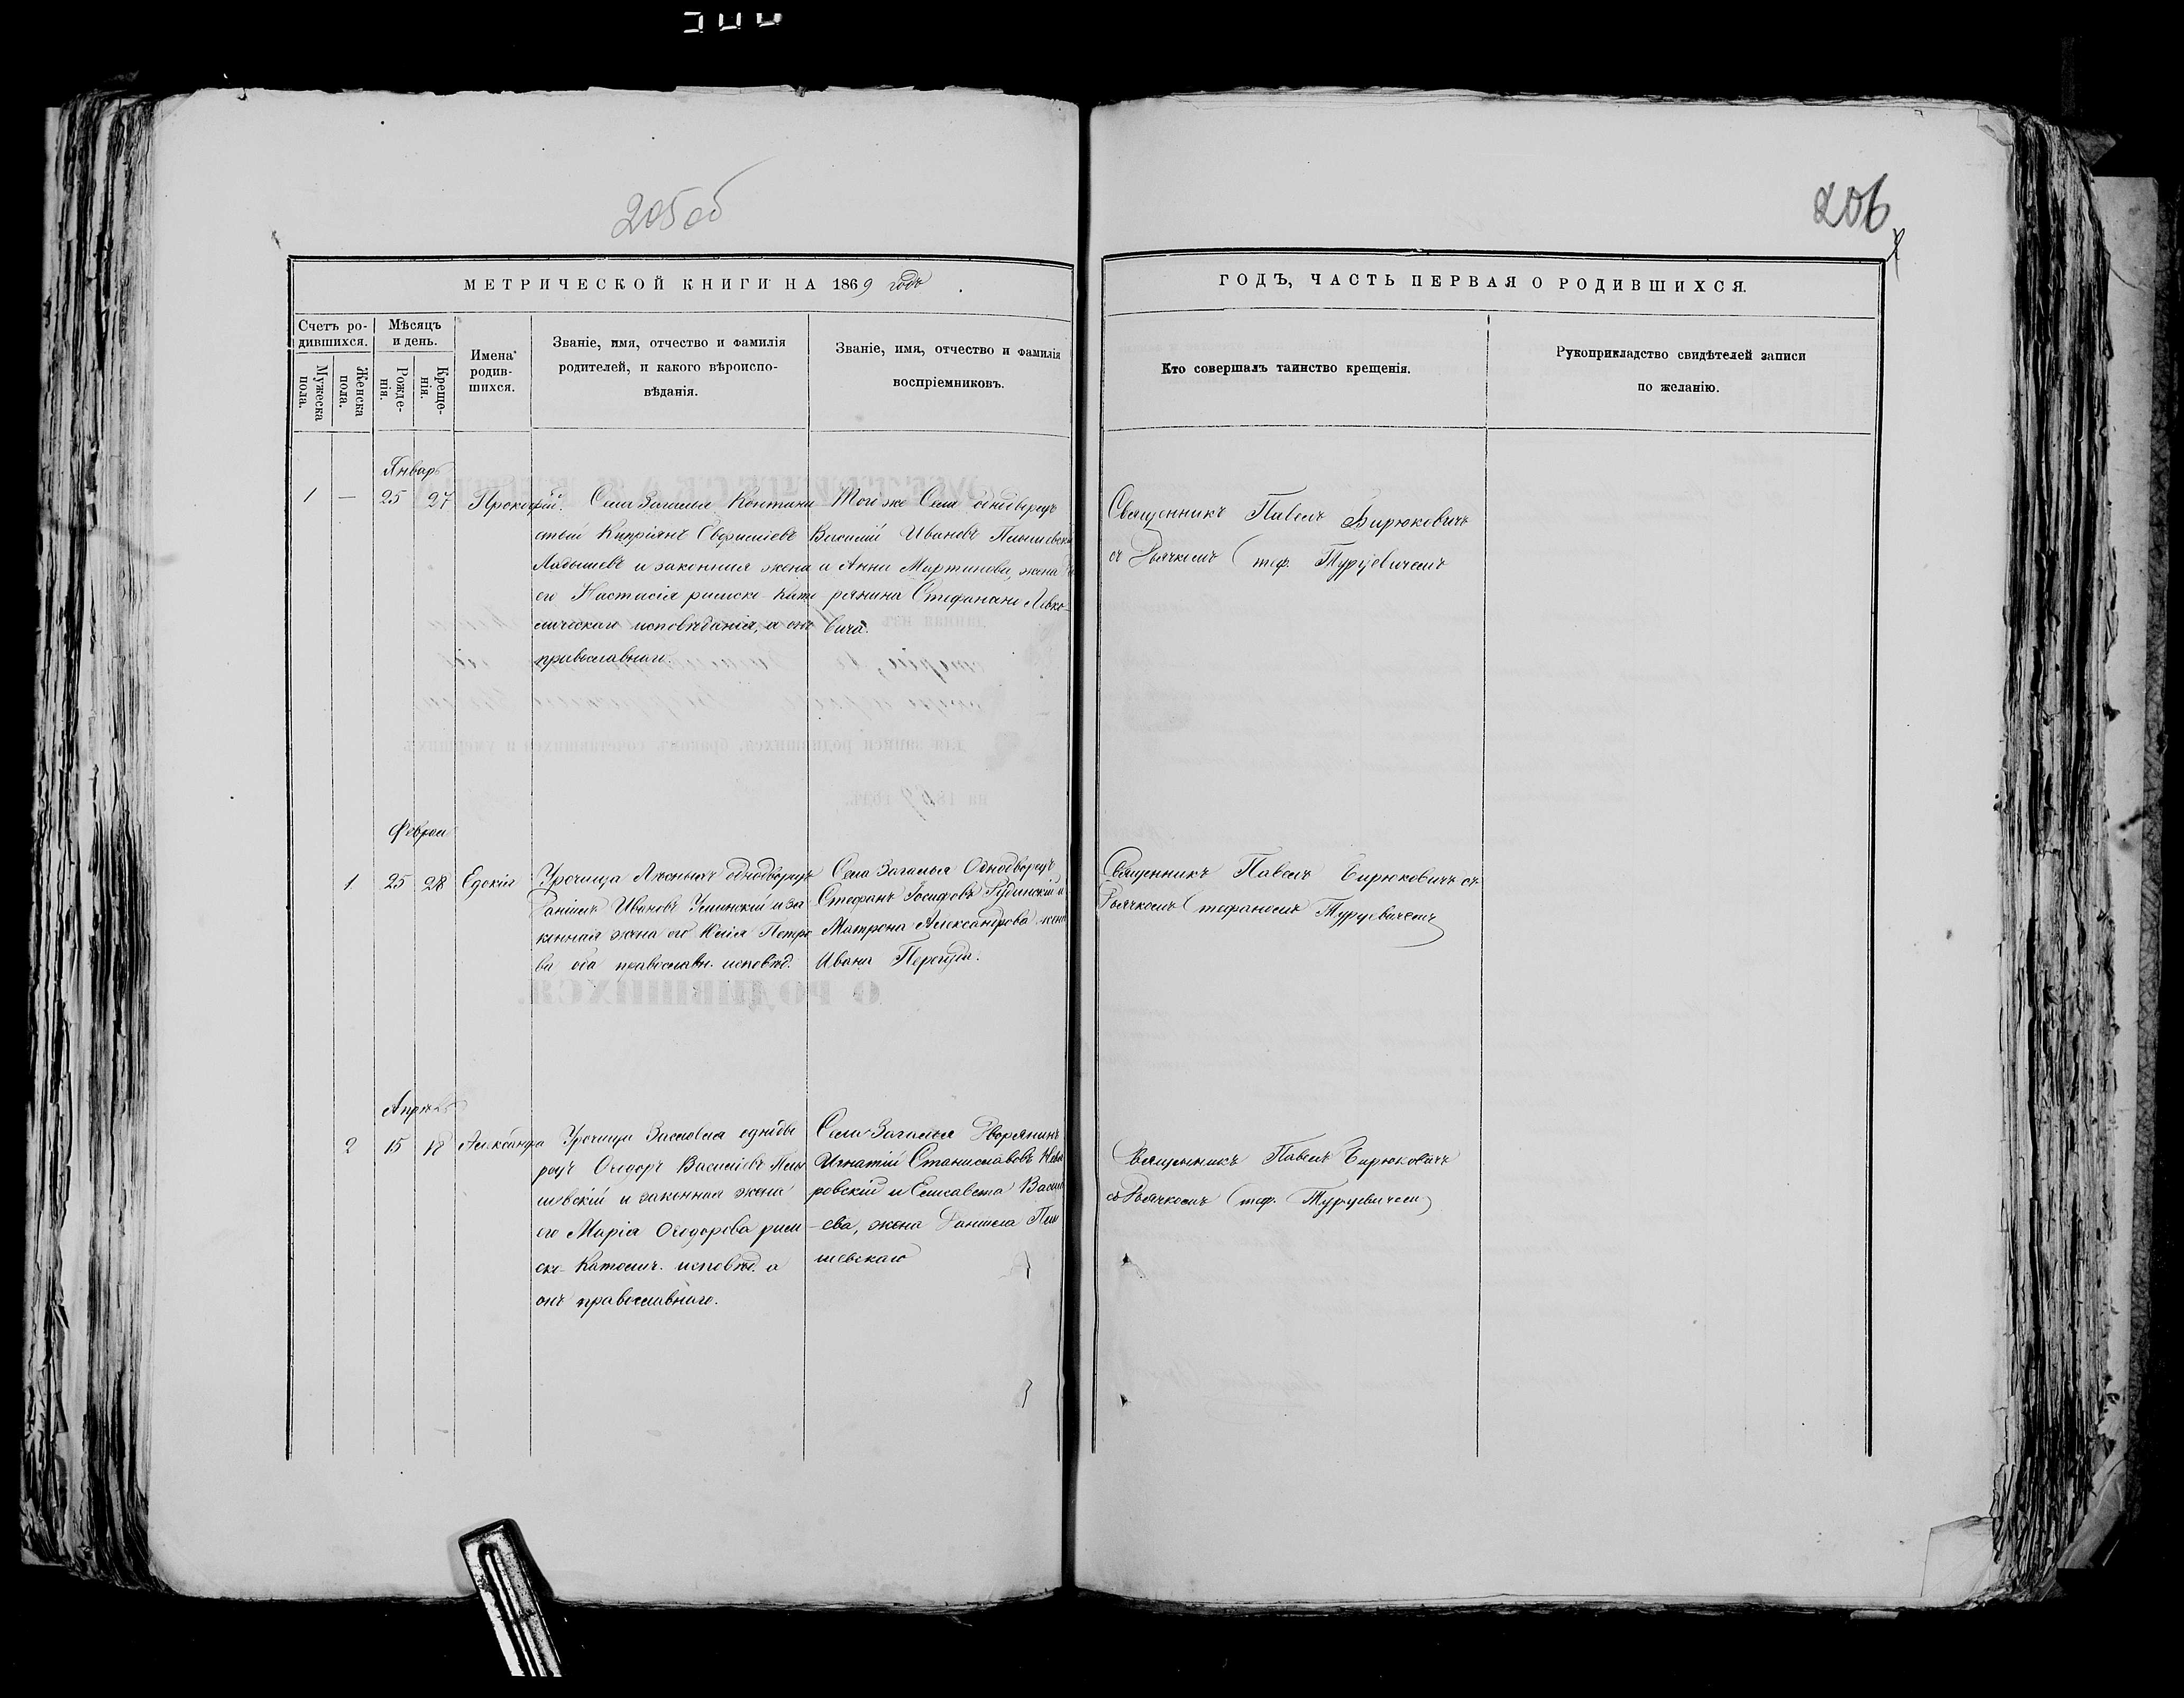 205 об
206
МЕТРИЧЕСКОЙ КНИГИ НА 1869 годъ
ГОДЪ, ЧАСТЬ ПЕРВАЯ О РОДИВШИХСЯ.
Счетъ ро-
дившихся.
Мужеска
пола.
Женска
пола.
Мѣсяцъ
и день.
Рожде-
нія.
Креще-
нія.
Имена
родив-
шихся.
Званіе, имя, отчество и фамилія
родителей, и какого вѣроиспо-
вѣданія.
Званіе, имя, отчество и фамилія
воспріемниковъ.
Кто совершалъ таинство крещенія.
Рукоприкладство свидѣтелей записи
по желанію.
Январь
1 — 25 27 Прокофій.
Села Загалья
Кипріянъ
и законная жена
его Настасія римско-като
лическаго исповѣданія, а онъ
православнаго.
Того же Села однодворецъ
Василій Ивановъ
и Анна Мартинова, жена
рянина Стефана Левко-
вича.
Священникъ Павелъ Бирюковичъ
съ Дьячкомъ Стеф. Турцевичемъ
Феврал
1 25 28 Евдокія
Урочища однодворецъ
Даніилъ Ивановъ и за
конная жена его Юлія Петро
ва оба православн. исповѣд.
Села Загалья Однодворецъ
Стефанъ Іосифовъ и
Матрона Александрова жена
Ивана
Священникъ Павелъ Бирюковичъ съ
Дьячкомъ Стефаномъ Турцевичемъ
Апрѣль
2 15 18 Александра
Урочища однодво
рецъ Ѳеодоръ Василіевъ Плы
шевскій и законная жена
его Марія Ѳеодорова рим
ско-Католич. исповѣд. а
онъ православнаго.
Села Загалья Дворянинъ
Игнатій Станиславовъ
ровскій и Елисавета Васил
ева, жена Даніила Плы
шевскаго
Священникъ Павелъ Бирюковичъ
съ Дьячкомъ Стеф. Турцевичемъ